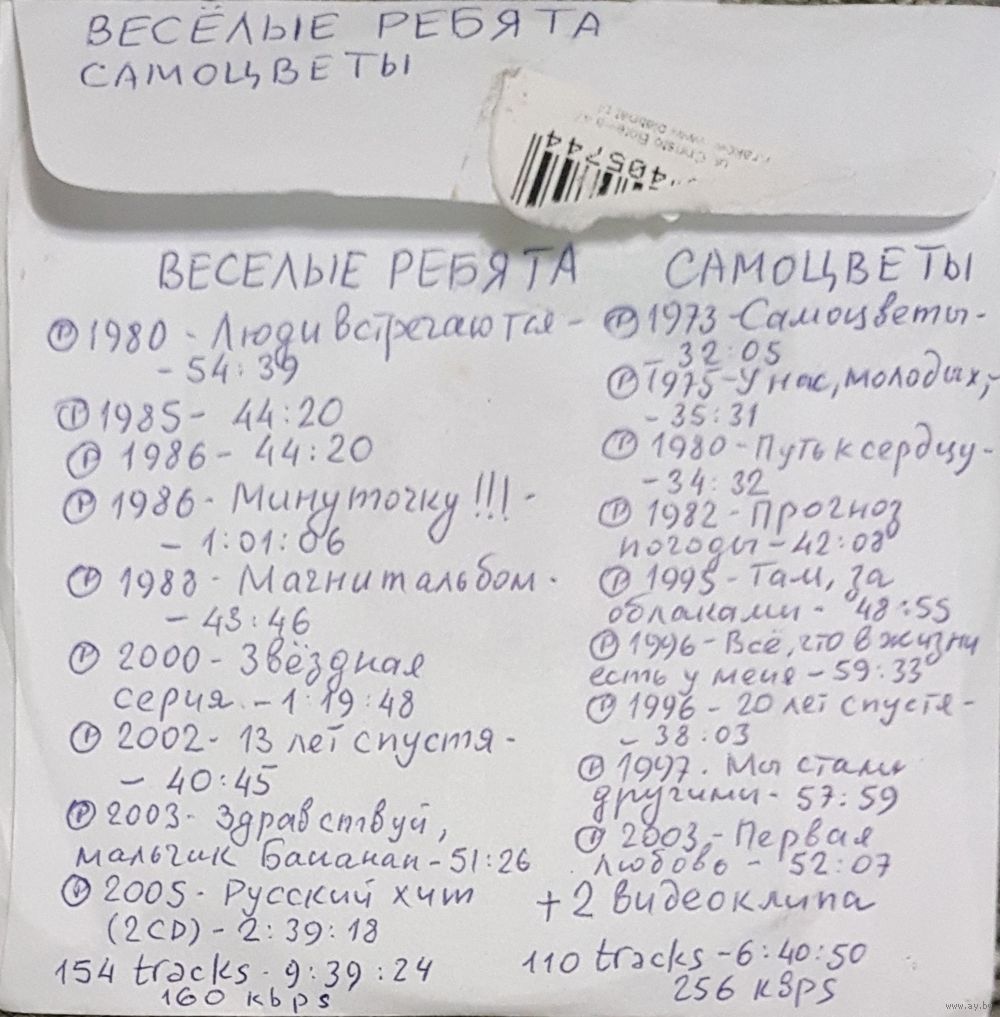 ВЕСЁЛЫЕ РЕБЯТА
САМОЦВЕТЫ
405744
ВЕСЕЛЫЕ РЕБЯТА
Ⓟ 1980 - Люди встречаются -
- 54:39
Ⓟ 1985 - 44:20
Ⓟ 1986 - 44:20
Ⓟ 1986 - Минуточку!!! -
- 1:01:06
Ⓟ 1988 - Магнитальбом -
- 43:46
Ⓟ 2000 - Звёздная
серия - 1:19:48
Ⓟ 2002 - 13 лет спустя -
- 40:45
Ⓟ 2003 - Здравствуй,
мальчик Бананан - 51:26
Ⓟ 2005 - Русский хит
(2CD) - 2:39:18
154 tracks - 9:39:24
160 kbps
САМОЦВЕТЫ
Ⓟ 1973 - Самоцветы -
- 32:05
Ⓟ 1975 - У нас, молодых, -
- 35:31
Ⓟ 1980 - Путь к сердцу -
- 34:32
Ⓟ 1982 - Прогноз
погоды - 42:08
Ⓟ 1995 - Там, за
облаками - 48:55
Ⓟ 1996 - Всё, что в жизни
есть у меня - 59:33
Ⓟ 1996 - 20 лет спустя -
- 38:03
Ⓟ 1997. Мы стали
другими - 57:59
Ⓟ 2003 - Первая
любовь - 52:07
+ 2 видеоклипа
110 tracks - 6:40:50
256 кBps